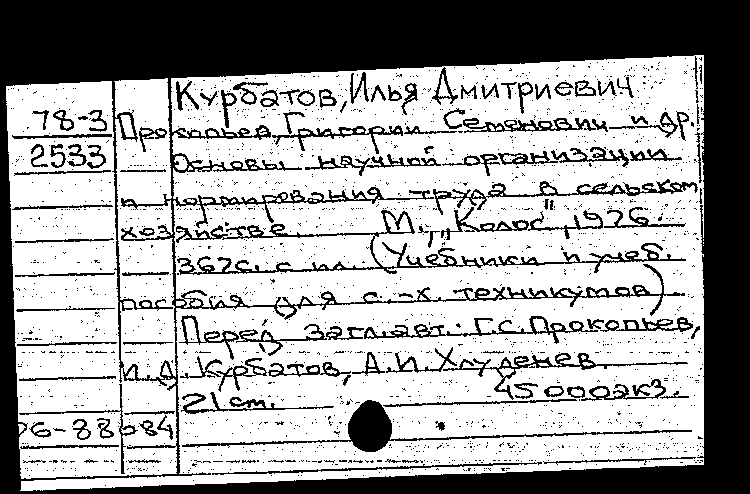 Курбатов, Илья Дмитриевич
78-3 Прокопьев, Григорий Семенович и др.
2533 Основы научной организации
и нормирования труда в сельском
хозяйстве. М., "Колос", 1976.
367с. с ил. (Учебники и учеб.
пособия для с.-х. техникумов)
Перед загл. авт.: Г.С. Прокопьев,
И.Д. Курбатов, А.И. Хлуденев.
21 cm. 45000экз.
76-88684